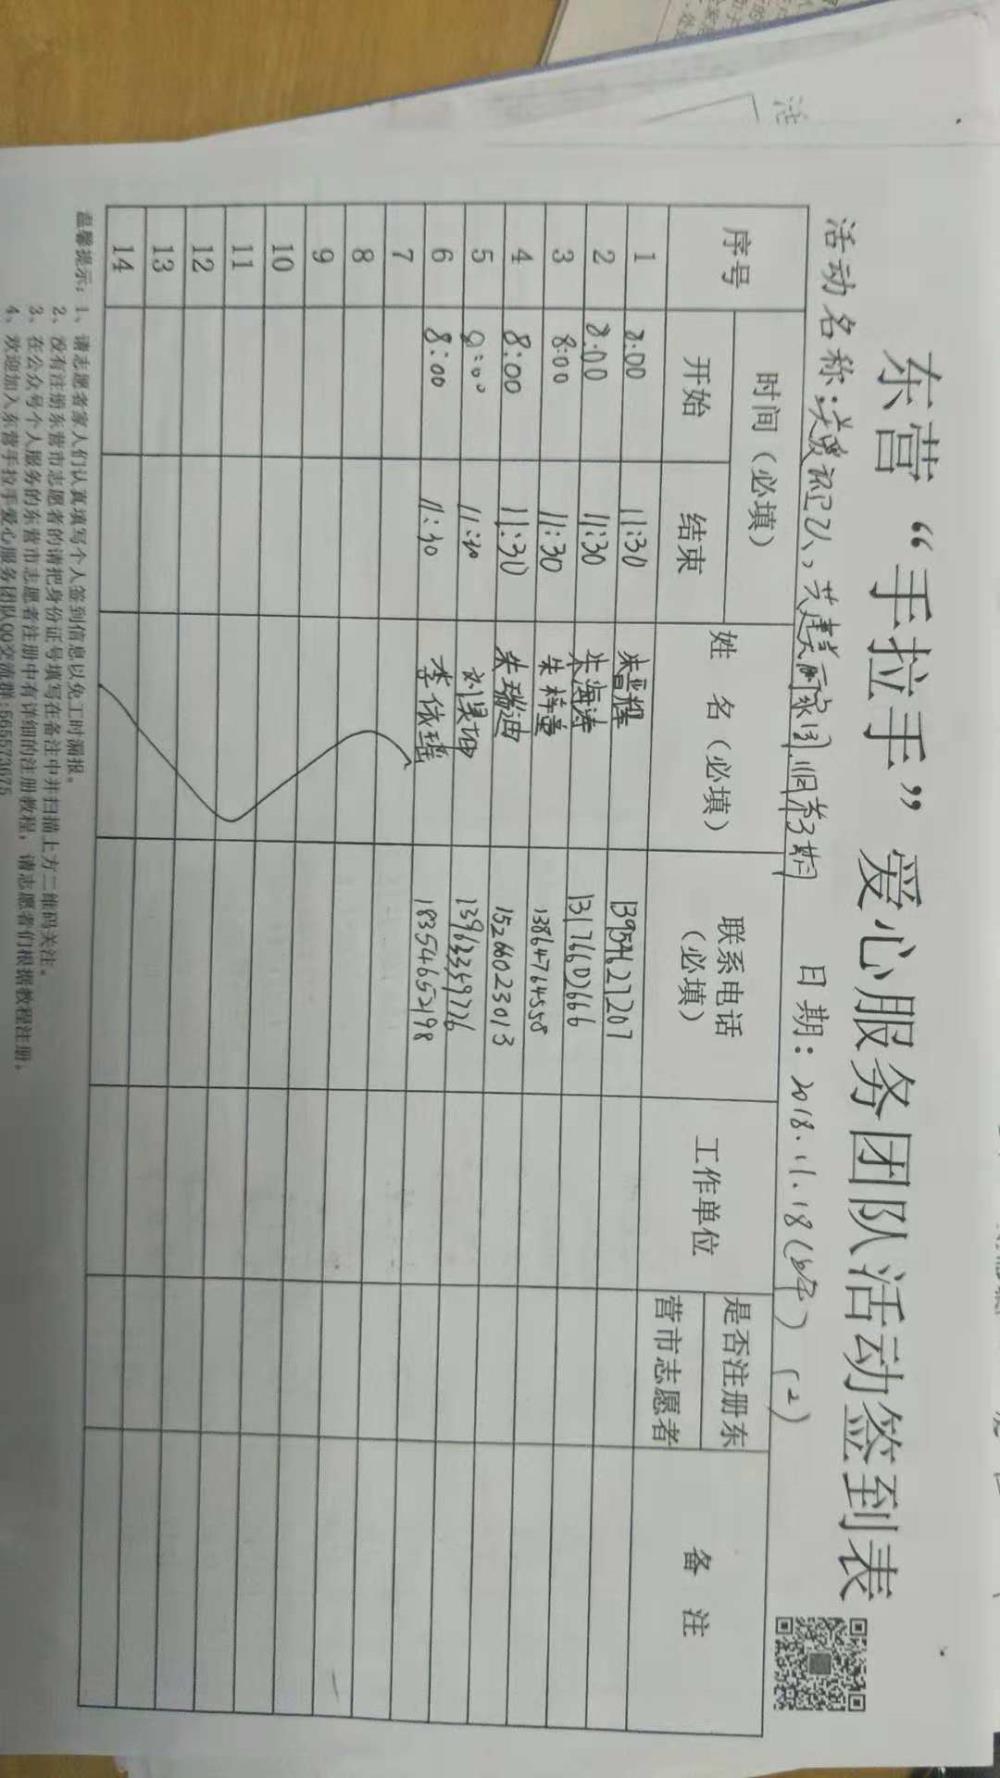 东营“手拉手”爱心服务团队活动签到表
活动名称：关爱 日期：2018.11.18 (2)
序号 时间（必填） 姓 名（必填） 联系电话（必填） 工作单位 是否注册东营市志愿者 备 注
开始 结束
1 8:00 11:30 13954627207
2 8:00 11:30 朱海涛 13176602666
3 8:00 11:30 朱梓童 13864764558
4 8:00 11:30 朱瑞迪 15266023013
5 8:00 11:30 13963359776
6 8:00 11:30 李依瑶 18354652198
7
8
9
10
11
12
13
14
温馨提示：1、请志愿者家人们认真填写个人签到信息以免工时漏报。
2、没有注册东营市志愿者的请把身份证号填写在备注中并扫描上方二维码关注。
3、在公众号个人服务的东营市志愿者注册中有详细的注册教程，请志愿者们根据教程注册。
4、欢迎加入东营手拉手爱心服务团队QQ交流群:565573675